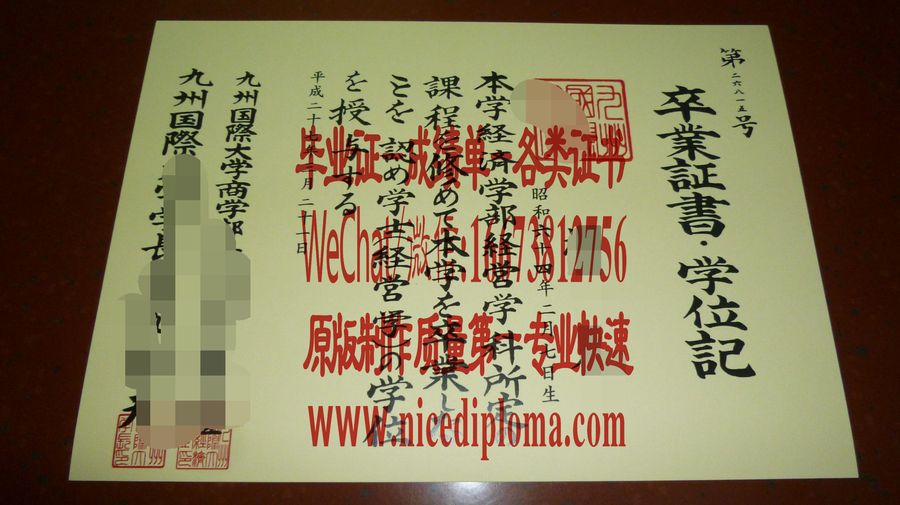 第二六八一五号
卒業証書・学位記
昭和六十四年二月七日生
本学経済学部経営学科所定
課程を修めて本学を卒業した
ことを認め学士経営学の学位
を授与する
平成二十七年三月二十一日
九州国際大学商学部
九州国際
毕业证 成绩单 各类证书
WeChat
原版制作 质量第一 专业快速
www.nicediploma.com